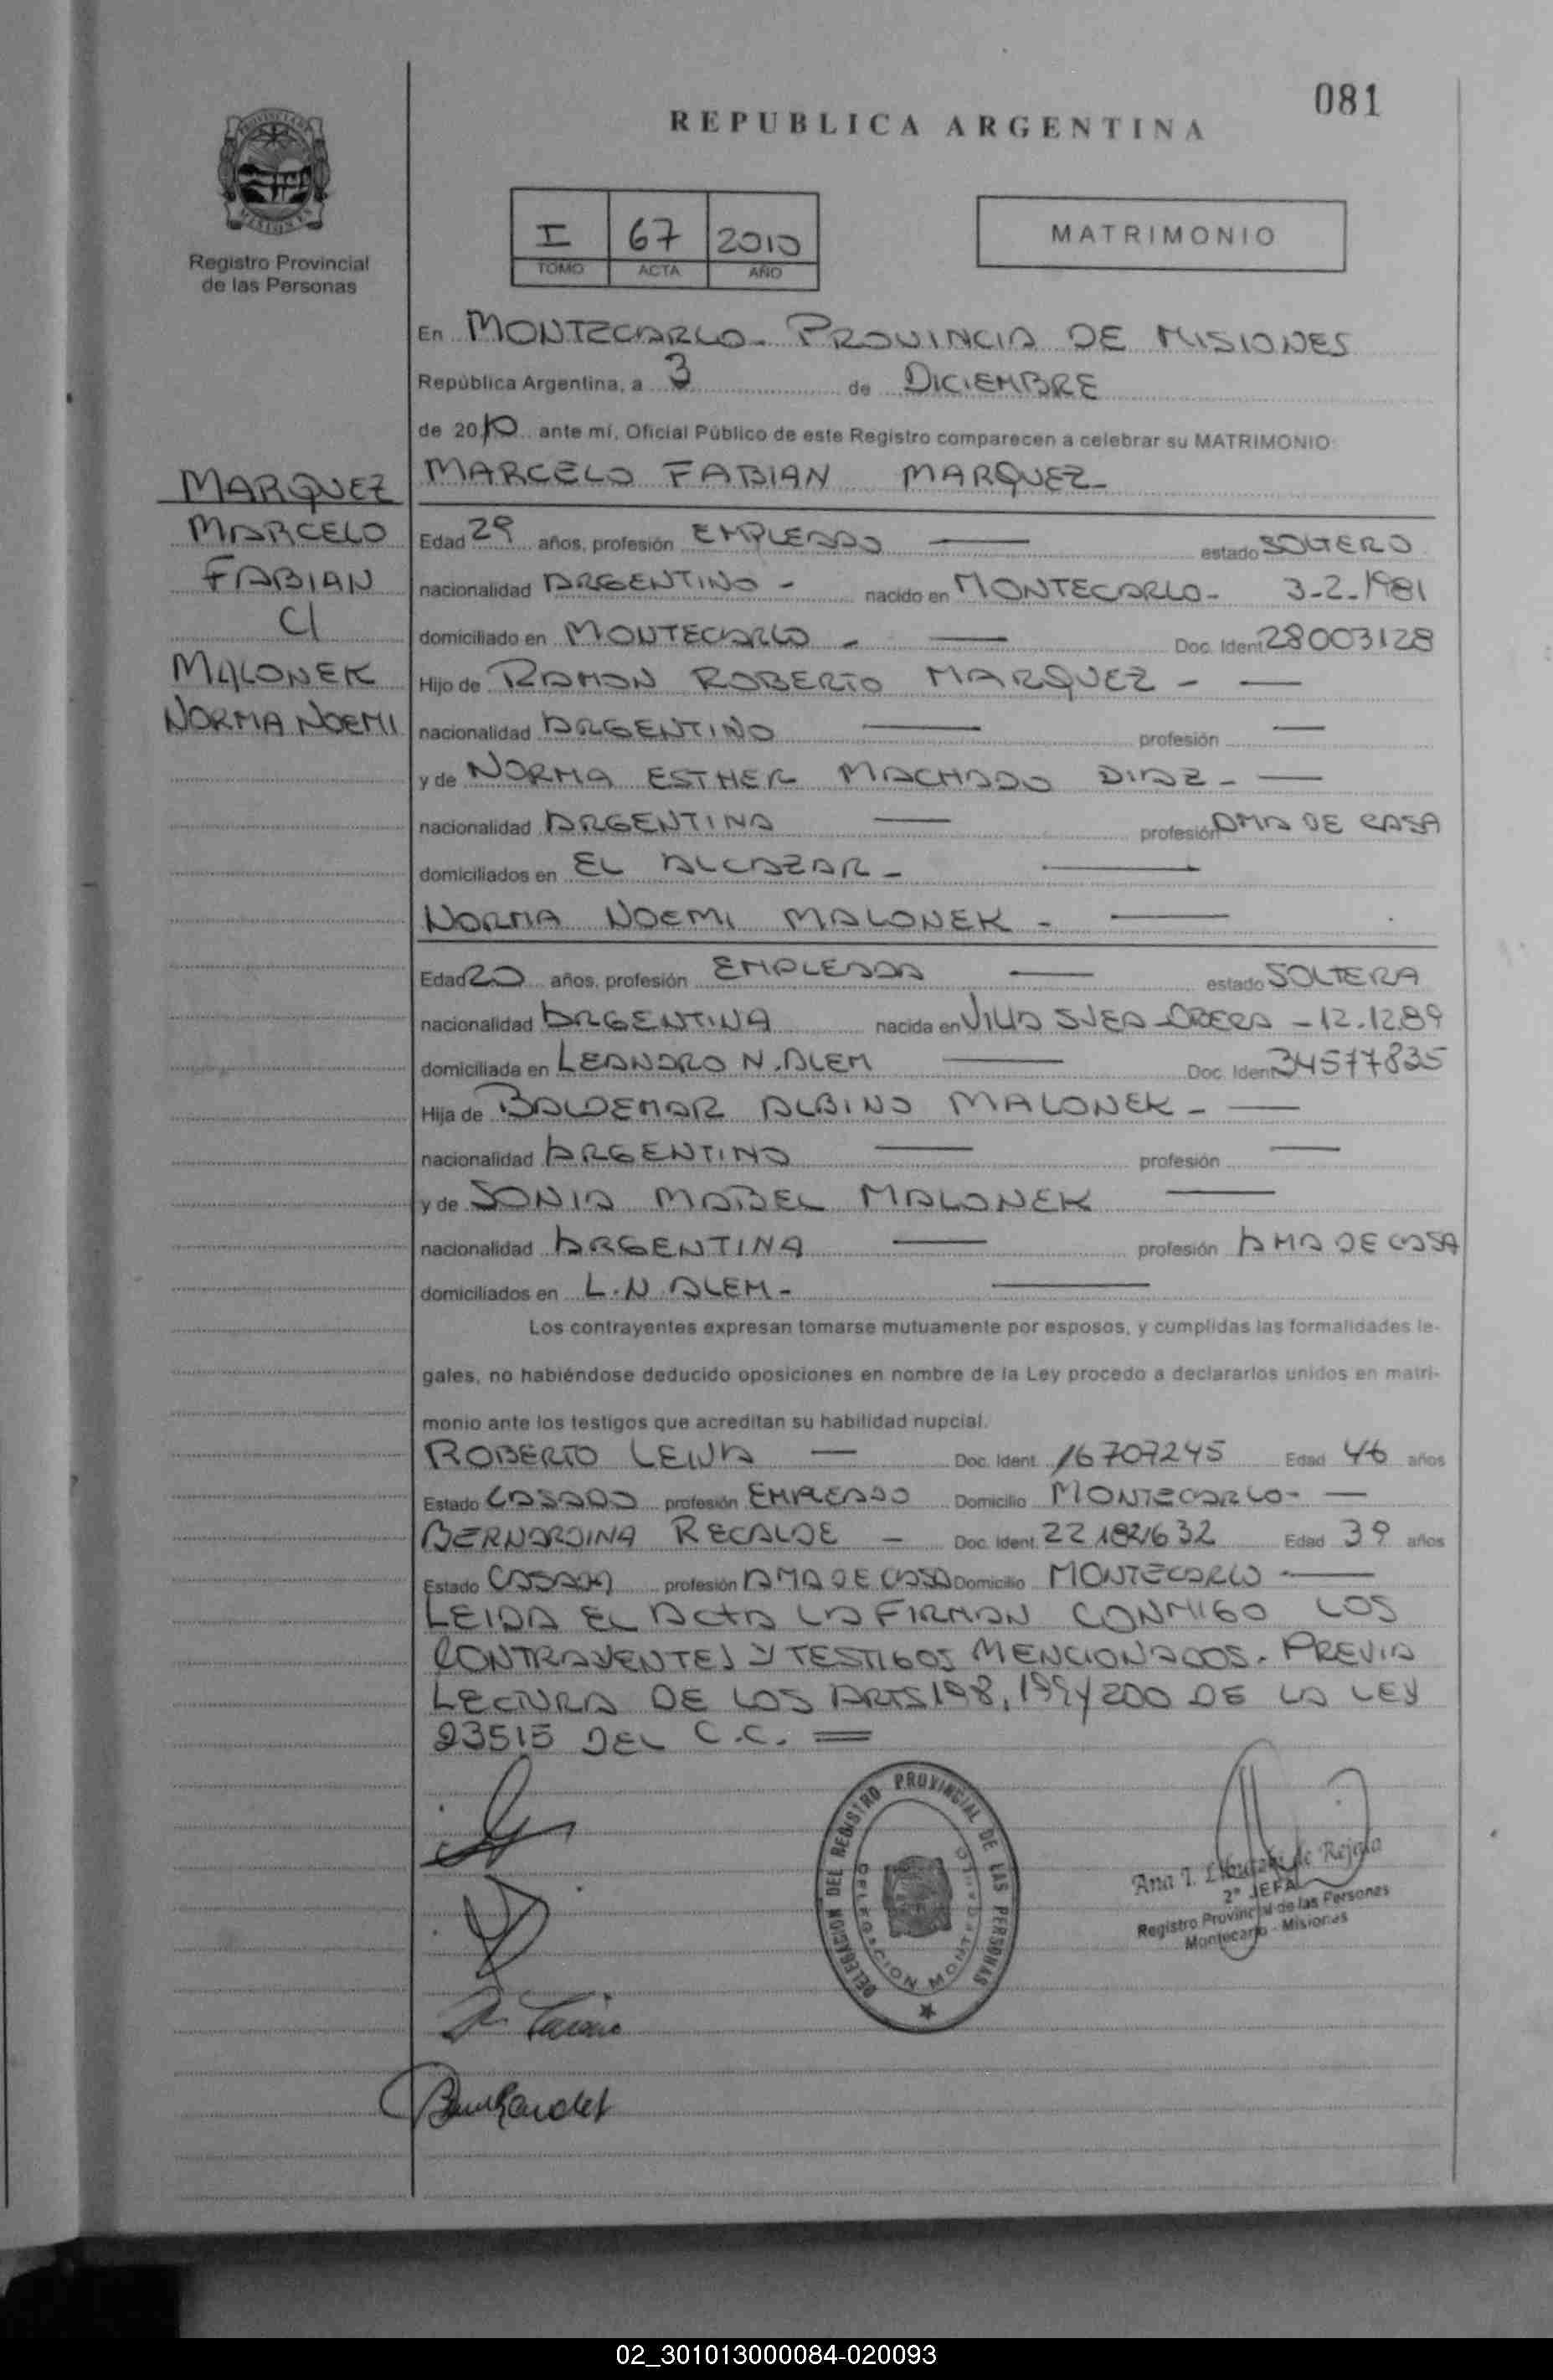 081
REPUBLICA ARGENTINA
PROVINCIA DE MISIONES
Registro Provincial
de las Personas
I 67 2010
TOMO ACTA AÑO
MATRIMONIO
En MONTECARLO - PROVINCIA DE MISIONES
República Argentina, a 3 de DICIEMBRE
de 2010 ante mí, Oficial Público de este Registro comparecen a celebrar su MATRIMONIO
MARCELO FABIAN MARQUEZ -
MARQUEZ
MARCELO
FABIAN
C/
MALONEK
NORMA NOEMI
Edad 29 años, profesión EMPLEADO — estado SOLTERO
nacionalidad ARGENTINO - nacido en MONTECARLO - 3-2-1981
domiciliado en MONTECARLO - — Doc. Ident 28003128
Hijo de RAMON ROBERTO MARQUEZ - —
nacionalidad ARGENTINO — profesión —
y de NORMA ESTHER MACHADO DIAZ - —
nacionalidad ARGENTINA — profesión AMA DE CASA
domiciliados en EL ALCAZAR - —
NORMA NOEMI MALONEK - —
Edad 20 años, profesión EMPLEADA — estado SOLTERA
nacionalidad ARGENTINA nacida en VILLA SVEA - OBERA - 12.12.89
domiciliada en LEANDRO N. ALEM — Doc. Ident 34577835
Hija de BALDEMAR ALBINO MALONEK - —
nacionalidad ARGENTINO — profesión —
y de SONIA MABEL MALONEK —
nacionalidad ARGENTINA — profesión AMA DE CASA
domiciliados en L.N. ALEM - —
Los contrayentes expresan tomarse mutuamente por esposos, y cumplidas las formalidades le-
gales, no habiéndose deducido oposiciones en nombre de la Ley procedo a declararlos unidos en matri-
monio ante los testigos que acreditan su habilidad nupcial.
ROBERTO LEIVA — Doc. Ident. 16707245 Edad 46 años
Estado CASADO profesión EMPLEADO Domicilio MONTECARLO - —
BERNARDINA RECALDE - Doc. Ident. 22182632 Edad 39 años
Estado CASADA profesión AMA DE CASA Domicilio MONTECARLO - —
LEIDA EL ACTA LA FIRMAN CONMIGO LOS
CONTRAYENTES Y TESTIGOS MENCIONADOS. PREVIA
LECTURA DE LOS ARTS 198, 199 Y 200 DE LA LEY
23515 DEL C.C. =
DELEGACION DEL REGISTRO PROVINCIAL DE LAS PERSONAS
DELEGACION
Ana I. de Rejala
2° JEFA
Registro Provincial de las Personas
Montecarlo - Misiones
02_301013000084-020093